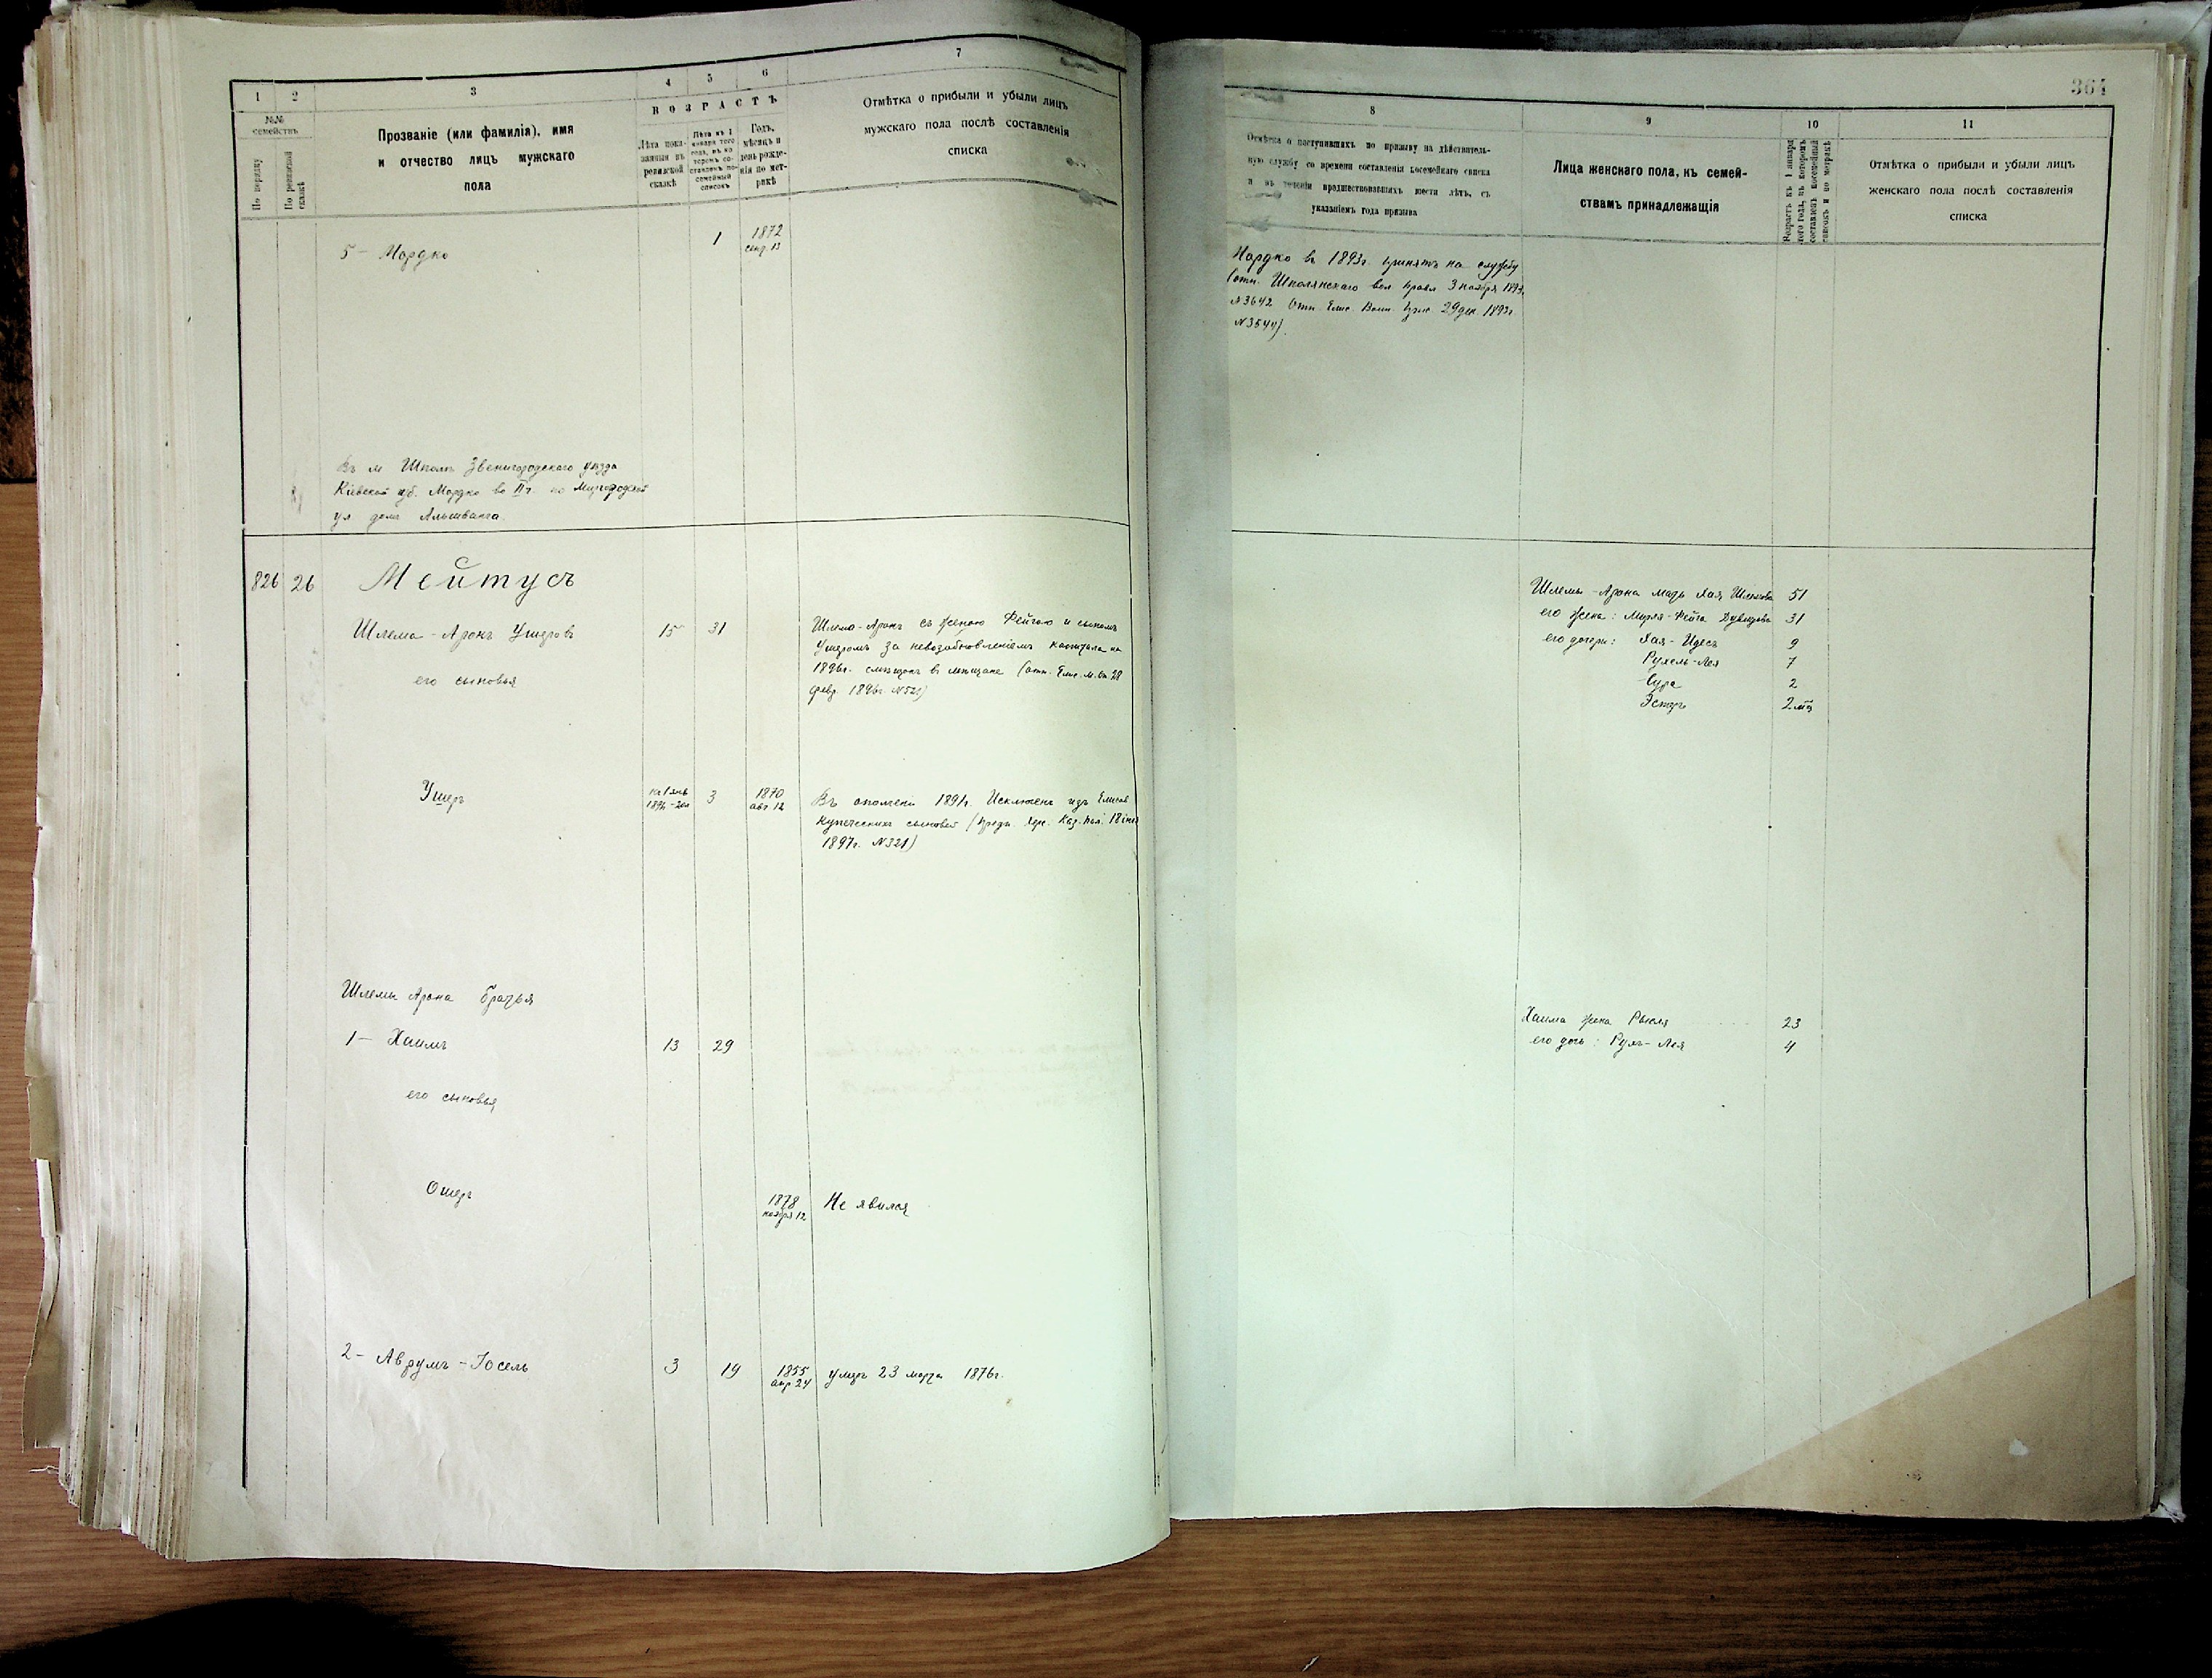 364
1
2
3
4
5
6
7
№№ семействъ
По порядку
По ревизской сказкѣ
Прозваніе (или фамилія), имя
и отчество лицъ мужскаго
пола
ВОЗРАСТЪ
Лѣта пока-
занныя въ
ревизской
сказкѣ
Лѣта къ 1
января того
года, въ ко
торомъ со-
ставленъ по-
семейный
списокъ
Годъ,
мѣсяцъ и
день рожде-
нія по мет-
рикѣ
Отмѣтка о прибыли и убыли лицъ
мужскаго пола послѣ составленія
списка
5 - Мордко
1
1872
сент. 13
Въ м Шполѣ Звенигородскаго уѣзда
Кіевской губ. Мордко во II ч. по Миргородской
ул домъ Альшванга
826
26
Мейтусъ
Шлема-Аронъ Ушеровъ
15
31
Шлема-Аронъ съ женою Фейгою и сыномъ
Ушеромъ за невозобновленіемъ капитала на
1896г. въ мѣщане (отн. Елис. м. 28
февр. 1896г. №521)
его сыновья
Ушеръ
3
1870
авг 12
Въ ополченіи 1891г. Исключенъ изъ Елисав
купеческихъ сыновей (предп. Хер. Каз. Пал. 18
1897г. №321)
Шлемы Арона братья
1 - Хаимъ
13
29
его сыновья
Ошеръ
1878
ноября 12
Не явился
2 - Аврумъ-Іосель
3
19
1855
апр 24
умеръ 23 марта 1876г.
8
9
10
11
Отмѣтка о поступившихъ по призыву на дѣйствитель-
ную службу со времени составленія посемейнаго списка
и въ теченіи предшествовавшихъ шести лѣтъ, съ
указаніемъ года призыва
Лица женскаго пола, къ семей-
ствамъ принадлежащія
Возрастъ къ 1 января
того года, въ которомъ
составленъ посемейный
списокъ и по метрикѣ
Отмѣтка о прибыли и убыли лицъ
женскаго пола послѣ составленія
списка
Мордко въ 1893г. принятъ на службу
(отн. Шполянскаго вол правл 3 ноября 1893г.
№3642 Отн. Елис. Воин. Прис. 29 дек. 1893г.
№3544).
Шлемы-Арона мать Хая 51
его жена: Мирля-Фейга Дувидова 31
его дочери: Хая-Идесъ 9
Рухель-Лея 7
Сура 2
Эстеръ 2 мѣ
Хаима жена Рысля 23
его дочь: Рухъ-Лея 4